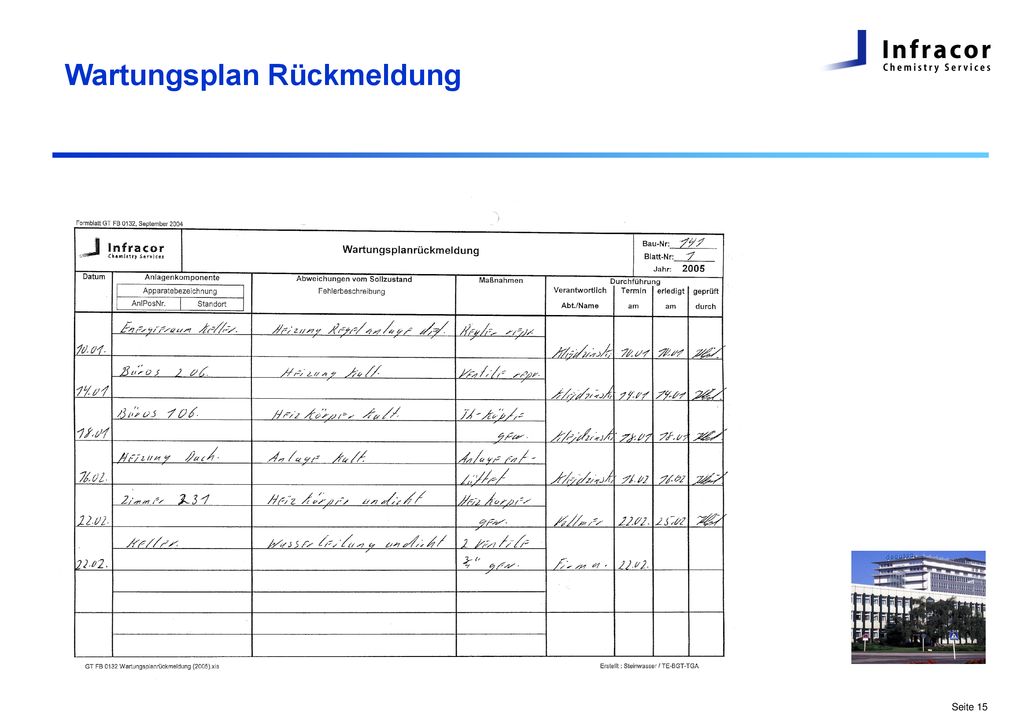 Wartungsplan Rückmeldung
Infracor
Chemistry Services
Formblatt GT FB 0132, September 2004
Infracor
Chemistry Services
Wartungsplanrückmeldung
Bau-Nr: 141
Blatt-Nr: 1
Jahr: 2005
Datum Anlagenkomponente Abweichungen vom Sollzustand Maßnahmen Durchführung
Apparatebezeichnung Fehlerbeschreibung Verantwortlich Termin erledigt geprüft
AnlPosNr. Standort Abt./Name am am durch
Energieraum Keller. Heizung Regelanlage def. Regler repr.
10.01. Kleidzinski 10.01 10.01
Büros 206. Heizung Kalt. Ventile repr.
14.01 Kleidzinski 14.01 14.01
Büros 106. Heizkörper Kalt. Th-Köpfe
18.01 gew. Kleidzinski 18.01 18.01
Heizung Dach. Anlage Kalt. Anlage ent-
16.02. lüftet Kleidzinski 16.02 16.02
Zimmer 231 Heizkörper undicht Heizkörper
22.02. gew. Vollmer 22.02. 25.02
Keller. Wasserleitung undicht 2 Ventile
22.02. 3/4" gew. Firma. 22.02.
GT FB 0132 Wartungsplanrückmeldung (2005).xls
Erstellt : Steinwasser / TE-BGT-TGA
Seite 15